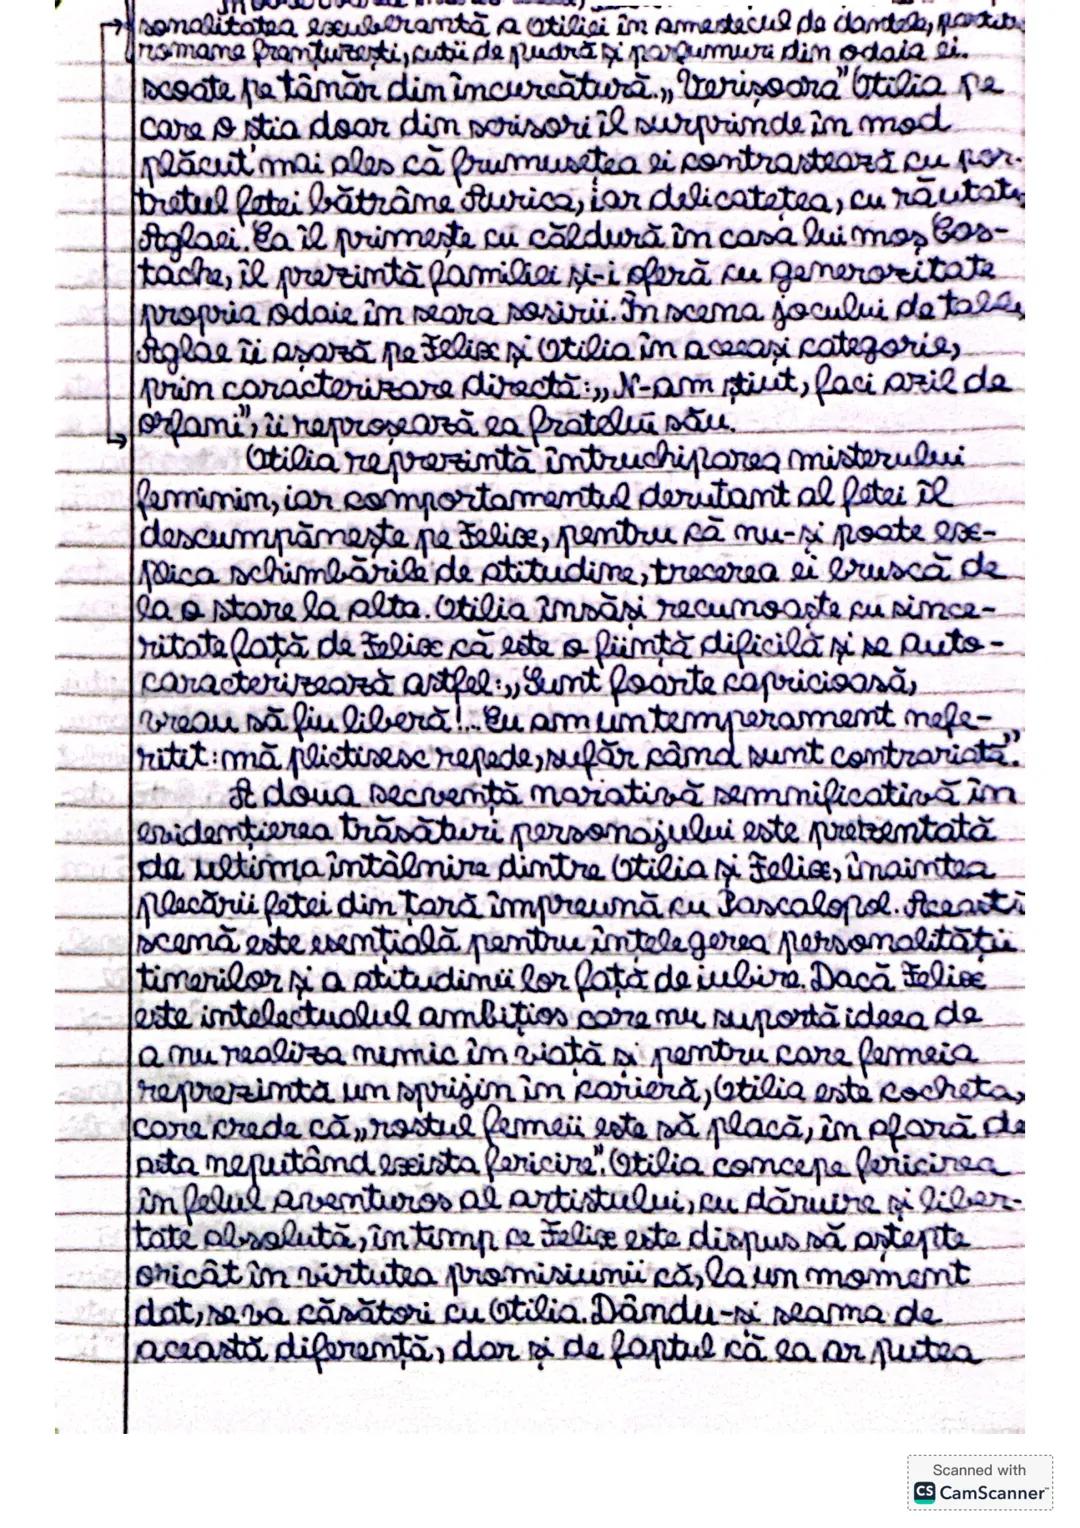 sonalitatea exuberantă a Otiliei în amestecul de dantele, partituri
romane franțurești, cutii de pudră și parfumuri din odaia ei.
scoate pe tânăr din încurcătură. „Verișoara” Otilia pe
care o știa doar din scrisori îl surprinde în mod
plăcut mai ales că frumusețea ei contrastează cu por-
tretul fetei bătrâne Aurica, iar delicatețea, cu răutatea
Aglaei. Ea îl primește cu căldură în casa lui moș Cos-
tache, îl prezintă familiei și-i oferă cu generozitate
propria odaie în seara sosirii. În scena jocului de table,
Aglae îi așază pe Felix și Otilia în aceeași categorie,
prin caracterizare directă: „N-am știut, faci azil de
orfani”, îi reproșează ea fratelui său.
Otilia reprezintă întruchiparea misterului
feminin, iar comportamentul derutant al fetei îl
descumpănește pe Felix, pentru că nu-și poate ex-
plica schimbările de atitudine, trecerea ei bruscă de
la o stare la alta. Otilia însăși recunoaște cu since-
ritate față de Felix că este o ființă dificilă și se auto-
caracterizează astfel: „Sunt foarte capricioasă,
vreau să fiu liberă!... Eu am un temperament nefe-
ricit: mă plictisesc repede, sufăr când sunt contrariată”.
A doua secvență narativă semnificativă în
evidențierea trăsături personajului este pretzentată
de ultima întâlnire dintre Otilia și Felix, înaintea
plecării fetei din țară împreună cu Pascalopol. Această
scenă este esențială pentru înțelegerea personalității
tinerilor și a atitudinii lor față de iubire. Dacă Felix
este intelectualul ambițios care nu suportă ideea de
a nu realiza nimic în viață și pentru care femeia
reprezintă un sprijin în carieră, Otilia este cocheta,
care crede că „rostul femeii este să placă, în afară de
asta neputând exista fericire”. Otilia concepe fericirea
în felul aventuros al artistului, cu dăruire și liber-
tate absolută, în timp ce Felix este dispus să aștepte
oricât în virtutea promisiunii că, la un moment
dat, se va căsători cu Otilia. Dându-și seama de
această diferență, dar și de faptul că ea ar putea
Scanned with
CS CamScanner